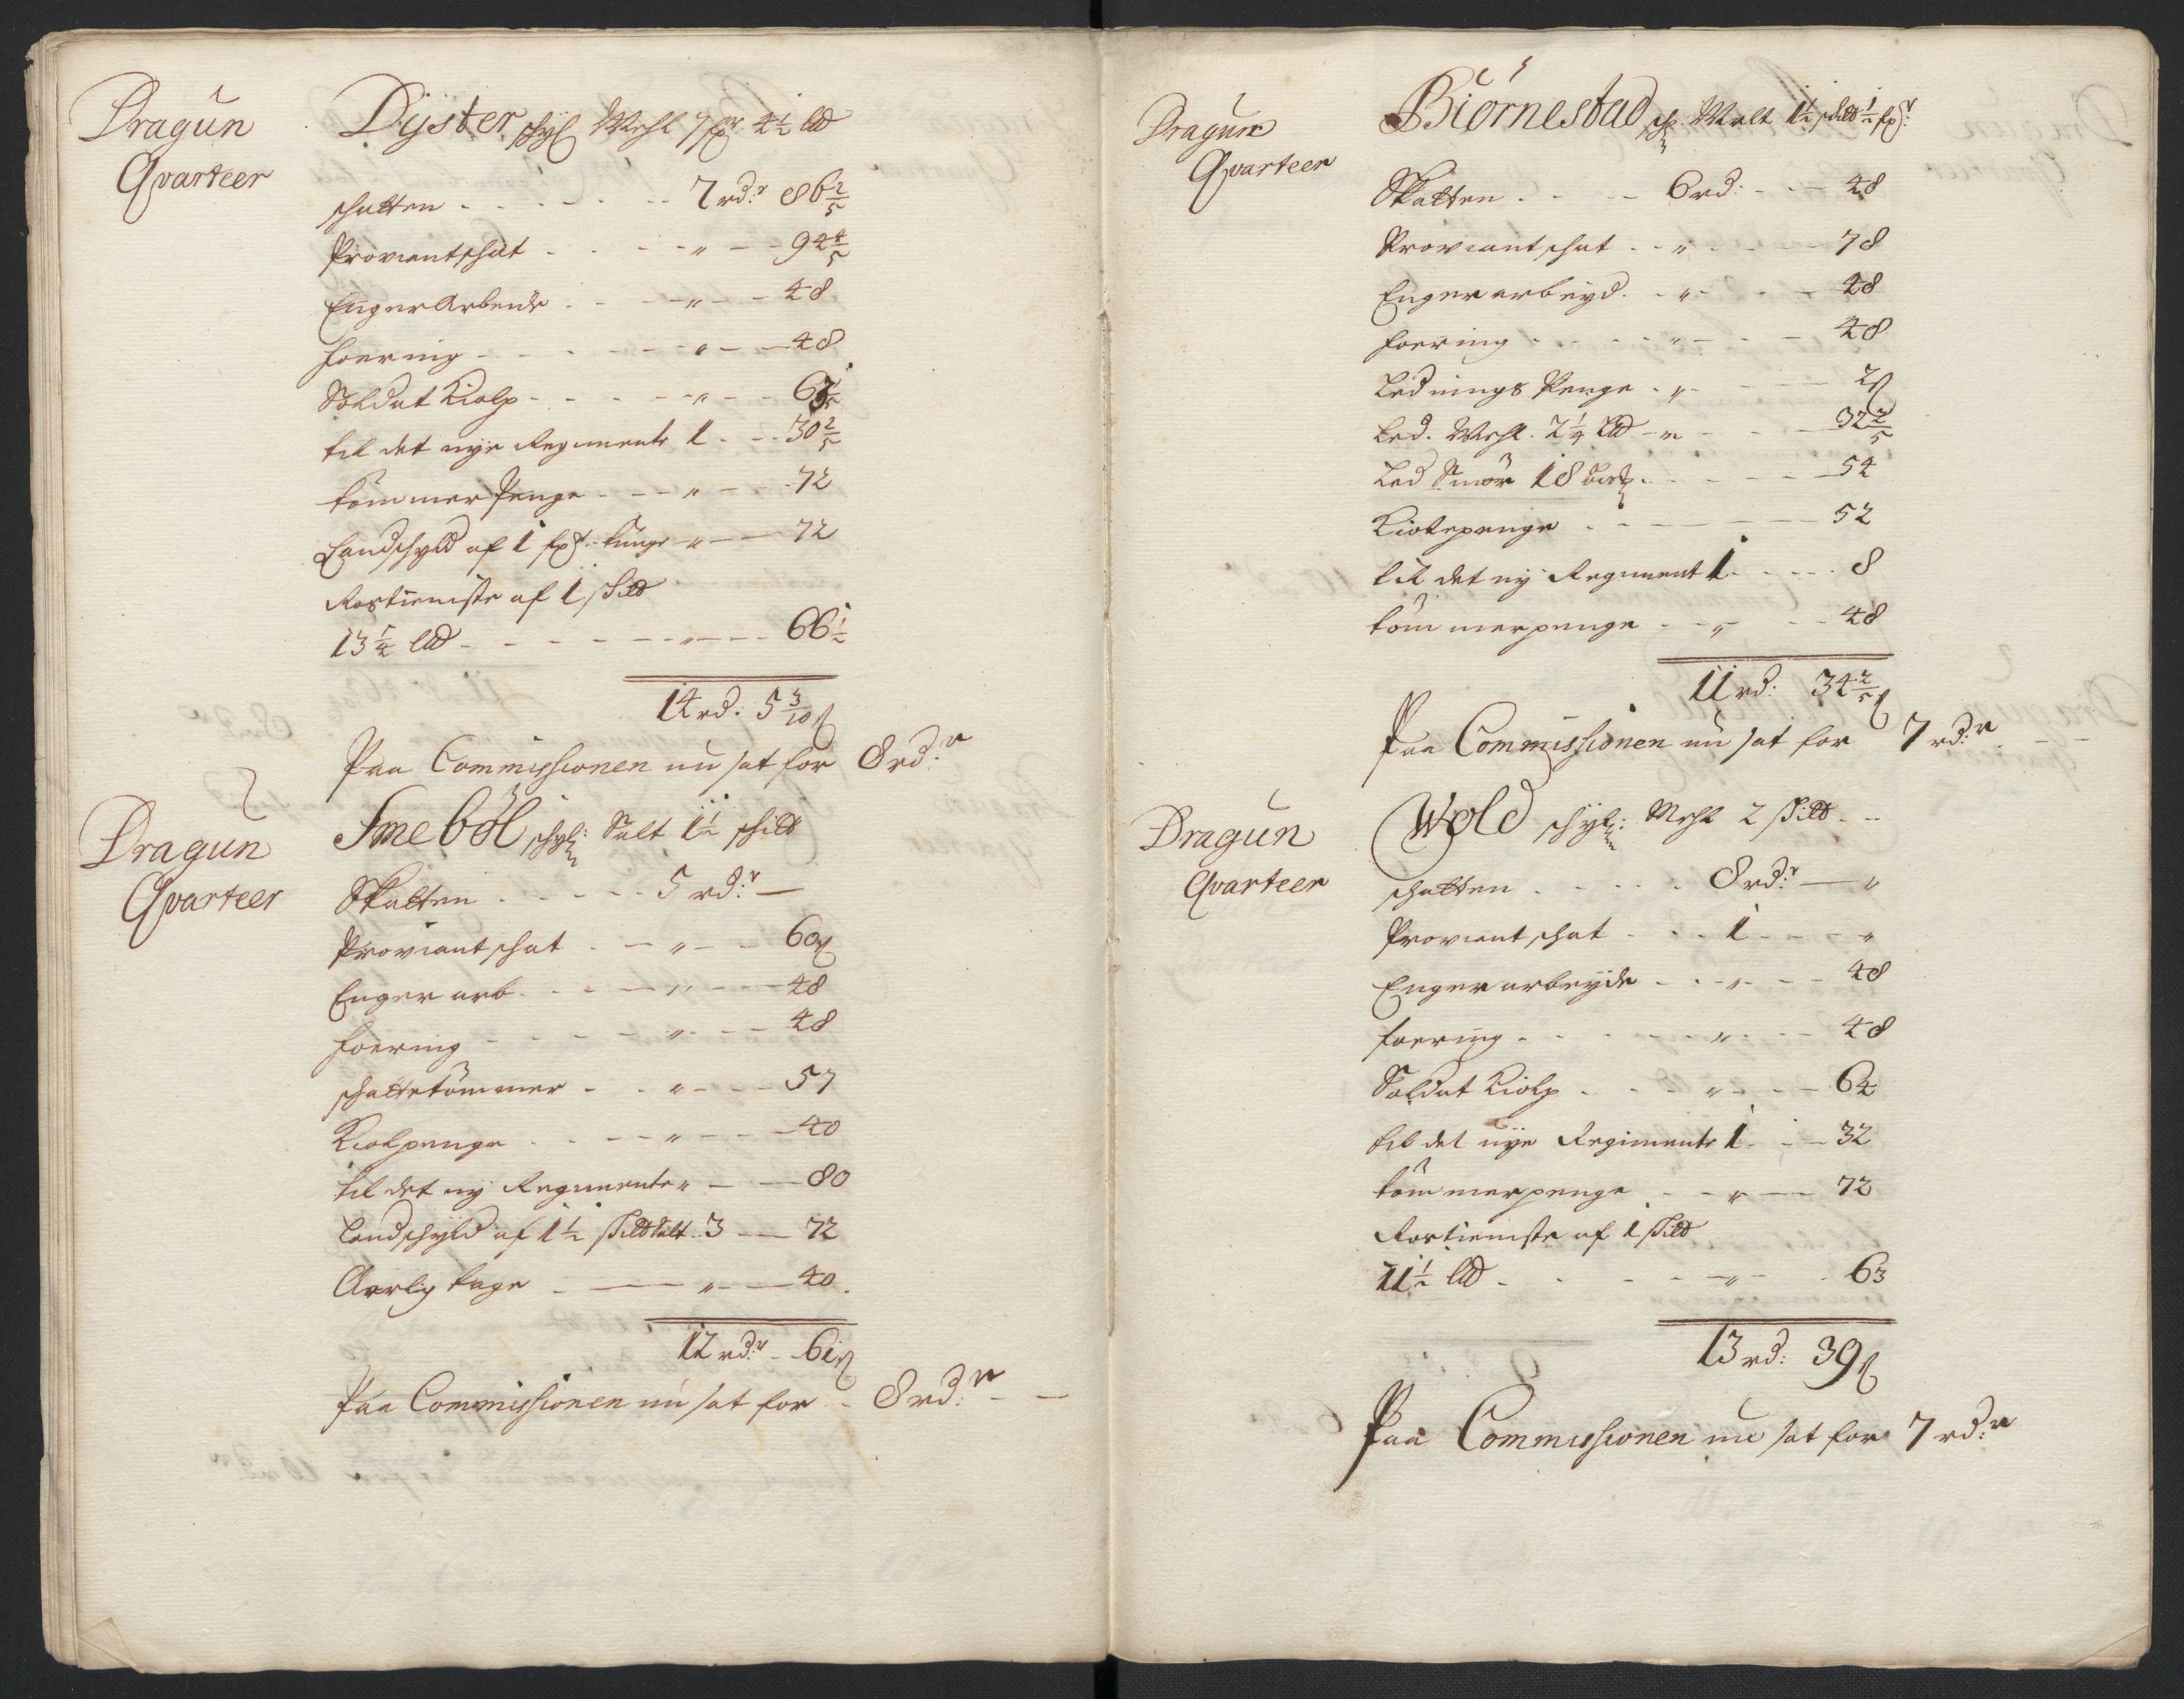 Dragun
Qvarteer
Dyster schyl Mehl 7 fr 4½ lld
schatten 7 rd:r 86 2/5
Proviantschat " 94 4/5
Enger Arbeide " 48
foering " 48
Soldat Kiolp " 63
til det nye Regimente 1 30 2/5
tömmer penge " 72
Landschyld af 1 tunge " 72
Rostieniste af 1 schild
13 lld " 66½
14 rd: 5 3/10
Paa Commissionen nu sat for 8 rd:r
Dragun
Qvarteer
Smeböl schyl: Salt 1½ schild
Skatten 5 rd:r
Proviantschat " 60
Enger arb " 48
foering " 48
schattetömmer " 57
Kiolpenge " 40
til det ny Regimente " 80
Landschyld af 1½ schild salt 3 72
Aarlig tage " 40
12 rd:r 61
Paa Commissionen nu sat for 8 rd:r
Dragun
Qvarteer
Biörnestad sch: Malt 1½ schild
Skatten 6 rd: 48
Proviantschat " 78
Enger arbeyd " 48
foering " 48
Lednings Penge " 2
Led. Mehl. 2¼ lld " 32 2/5
Led Smör 18 54
Kiolepenge 52
til det ny Regiment 1 8
tömmerpenge " 48
11 rd: 34 2/5
Paa Commissionen nu sat for 7 rd:r
Dragun
Qvarteer
Wold schyl: Mehl 2 schild
schatten 8 rd:r "
Proviantschat 1 "
Enger arbeyde " 48
foering " 48
Soldat Kiolp " 64
til det nye Regimente 1 32
tömmerpenge " 72
Rostieniste af 1 schild
11½ lld " 63
13 rd: 39
Paa Commissionen nu sat for 7 rd:r